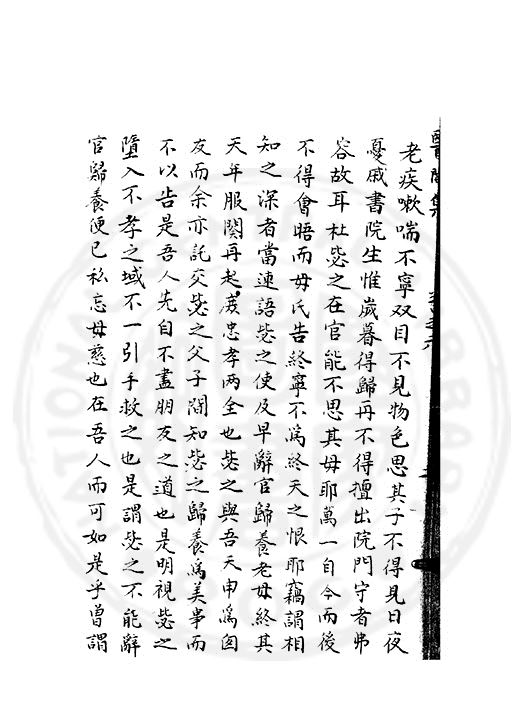 老疾嗽喘不寧双目不見物色思其子不得見日夜
憂戚書院生惟歲暮得歸再不得擅出院門守者弗
容故耳杜毖之在官能不思其母耶萬一自今而後
不得會晤而毋氏告終寧不為終天之恨耶竊謂相
知之深者當連語毖之使及早辭官歸養老母終其
天年服闋再起庻忠孝两全也毖之與吾天申為囱
友而余亦託交毖之父子間知毖之歸養為美事而
不以告是吾人先自不盡朋友之道也是明視毖之
墮入不孝之域不一引手救之也是謂毖之不能辭
官歸養便已私忘母慈也在吾人而可如是乎曽謂